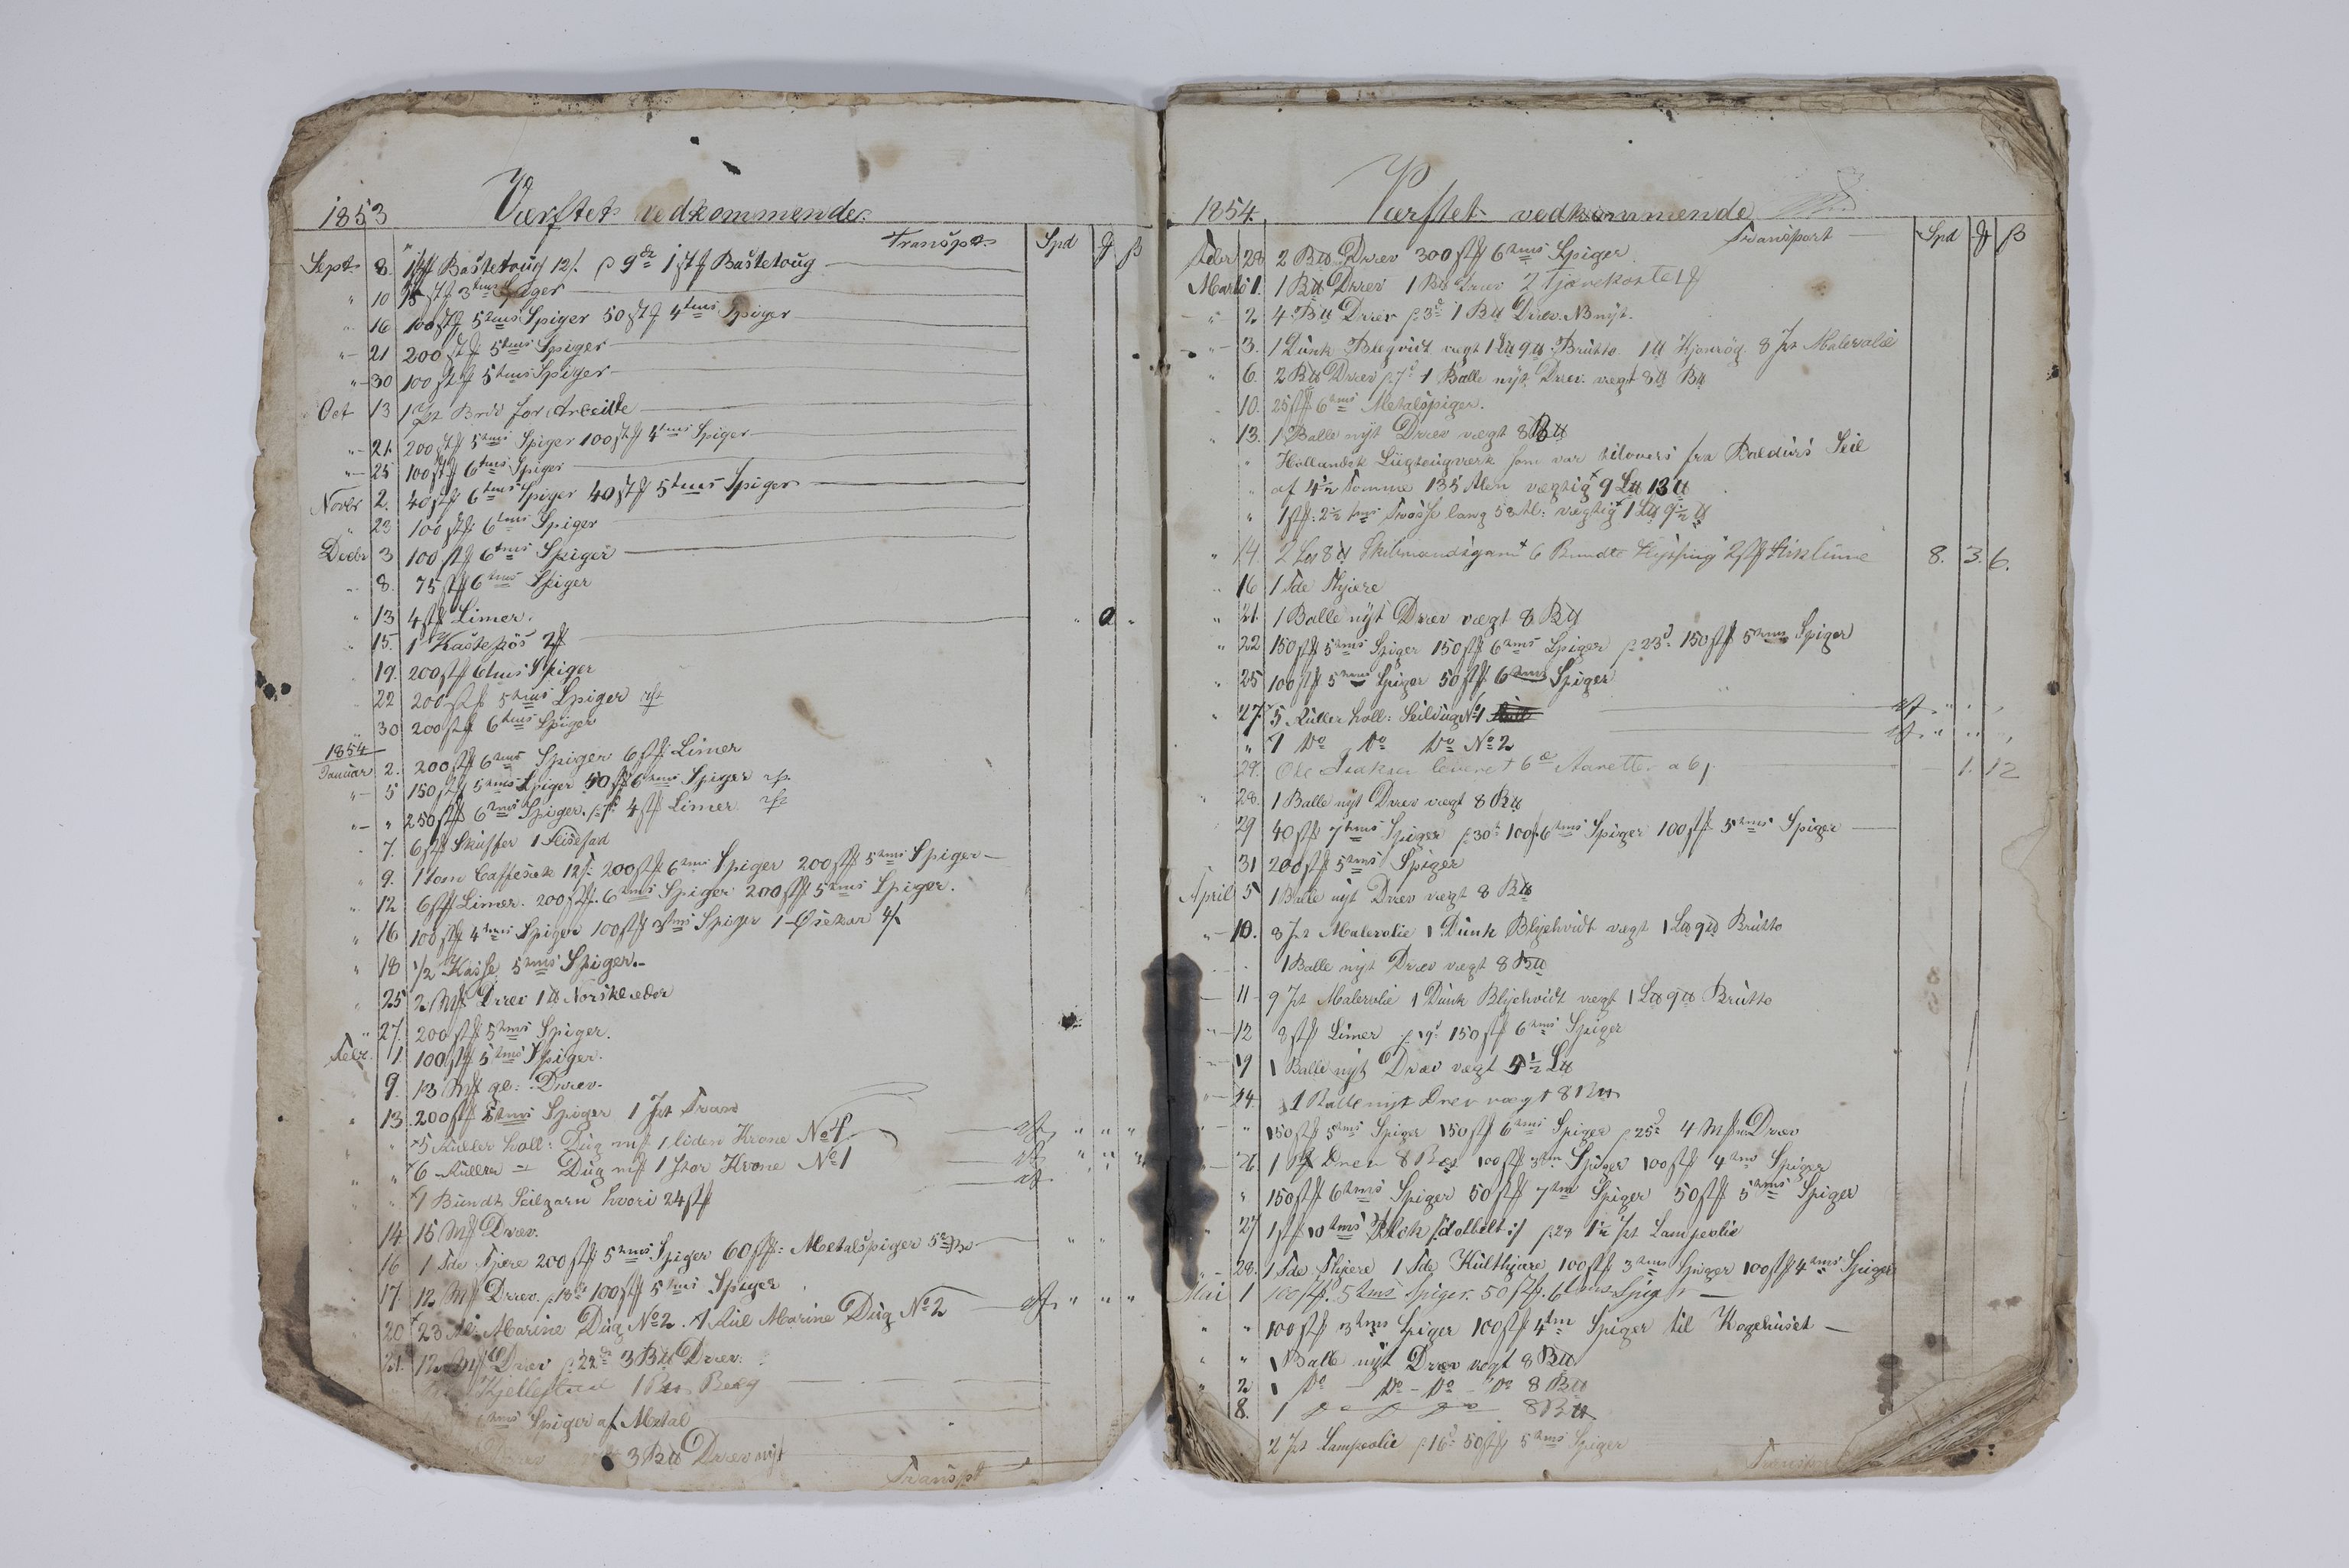 1853 Værftet vedkommende.
Transpt. Spd ß
Sept. 8. Bastetoug 12/. p 9de 1 stk Bastetoug
" 10 15 stk 3tms Spiger
" 16 100 stk 5tms Spiger 50 stk 4tms Spiger
" 21 200 stk 5tms Spiger
" 30 100 stk 5tms Spiger
Oct 13 1 Brød for Arbeide
" 21. 200 stk 5tms Spiger 100 stk 4tms Spiger
" 25 100 stk 6tms Spiger
Novbr 2. 40 stk 6tms Spiger 40 stk 5tms Spiger
" 23 100 stk 6tms Spiger
Decbr 3 100 stk 6tms Spiger
" 8. 75 stk 6tms Spiger
" 13 4 stk Limer.
" 15. 1
19. 200 stk 6tms Spiger
22 200 stk 5tms Spiger
" 30 200 stk 6tms Spiger
1854
Januar 2. 200 stk 6tms Spiger 6 stk Limer
" 5 150 stk 5tms Spiger 50 stk 6tms Spiger
" " 250 stk 6tms Spiger. 4 stk Limer
7. 6 stk Skuffer 1
" 9. 1 tom Caffesæk 12/: 200 stk 6tms Spiger 200 stk 5tms Spiger
" 12 6 stk Limer. 200 stk. 6tms Spiger 200 stk 5tms Spiger.
" 16 100 stk 4tms Spiger 100 stk 3tms Spiger 1 Øsekar
" 18 1/2 Kasse 5tms Spiger.
" 25 2 Drev 1 ℔ Norsklæder
" 27. 200 stk 5tms Spiger.
Febr. 1. 100 stk 5tms Spiger.
9. 13 gl: Drev.
" 13 200 stk 5tms Spiger 1 Pot Tran
" 5 Ruller holl: Dug m/ 1 liden Krone No 1
" " 6 Ruller Dug m/ 1 stor Krone No 1
" 1 Bundt Seilgarn hvori 24 stk
14 15 Drev.
16 1 Tde Tjere 200 stk 5tms Spiger 60 stk: Metalspiger
17. 12 Drev. p 18de 100 stk 5tms Spiger
20 23 Al: Marine Dug No 2. 1 Rul Marine Dug No 2
21. 12 Drev p 22de 3 B℔ Drev.
Kjellestad 1 Beeg
6tms Spiger af Metal
3 B℔ Drev nyt
Transpt
1854 Værftet vedkommende
Transport Spd ß
Febr 28 2 B℔ Drev 300 stk 6tms Spiger
Marts 1. 1 B℔ Drev 1 B℔ Drev 2 Tjærekoste
" 2 4 B℔ Drev p 3d 1 B℔ Drev. NB nyt.
" 3. 1 Dunk Blyhvidt vægt 1 L℔ 9 ℔ Brutto 1 ℔ Kjønrøg 8 Pot Malerolie
" 6. 2 B℔ Drev p 7d 1 Balle nyt Drev. vægt 8 B℔
10. 25 stk 6tms Metalspiger.
" 13. 1 Balle nyt Drev vægt 8 B℔
" Hollandsk som var tilovers fra Baldurs Seil
" af 4 1/2 Tomme 135 Alen vægtig 9 L℔ 13 ℔
" 1 stk: 2 1/2 tms Trosse lang 58 Al: vægtig 1 L℔ 9 1/2 ℔
" 14. 2 Skibmandsgarn 6 Bundte Hyssing 2 stk 8. 3. 6.
" 16 1 Tde Thjere
" 21. 1 Balle nyt Drev vægt 8 B℔
" 22 150 stk 5tms Spiger 150 stk 6tms Spiger p 23d 150 stk 5tms Spiger
" 25 100 stk 5tms Spiger 50 stk 6tms Spiger
" 27. 5 Ruller holl: Seildug No 1
" 1 Do Do Do No 2
29. Ole Isaksen leveret 6 a 6/ 1. 12
" 28. 1 Balle nyt Drev vægt 8 B℔
29 40 stk 7tms Spiger p 30d 100 6tms Spiger 100 stk 5tms Spiger
31 200 stk 5tms Spiger
April 5 1 Balle nyt Drev vægt 8 B℔
" 10. 8 Pot Malerolie 1 Dunk Blyehvidt vægt 1 L℔ 9 ℔ Brutto
1 Balle nyt Drev vægt 8 B℔
11 9 Pot Malerolie 1 Dunk Blyehvidt vægt 1 L℔ 9 ℔ Brutto
" 12 8 stk Limer p 19d 150 stk 6tms Spiger
19 1 Balle nyt Drev vægt 4 1/2 L℔
" 24. 1 Balle nyt Drev vægt 8 B℔
" " 150 stk 5tms Spiger 150 stk 6tms Spiger p 25d 4 Drev
" 26 1 Drev 8 100 stk 3tm Spiger 100 stk 4tms Spiger
" 150 stk 6tms Spiger 50 stk 7tm Spiger 50 stk 5tms Spiger
27 1 stk 10tms Blok p 28 1 1/2 Pot Lampeolie
" 28. 1 Tde Thjere 1 Tde Kulthjære 100 stk 3tms Spiger 100 stk 4tms Spiger
Mai 1 100 stk. 5tms Spiger. 50 stk. 6tms Spiger
" " 100 stk 3tms Spiger 100 stk 4tm Spiger til Kogehuset
" " 1 Balle nyt Drev vægt 8 B℔
" 2 1 Do Do Do Do 8 B℔
8. 1 8 B℔
2 Pot Lampeolie p 16d 50 stk 5tms Spiger
Transport